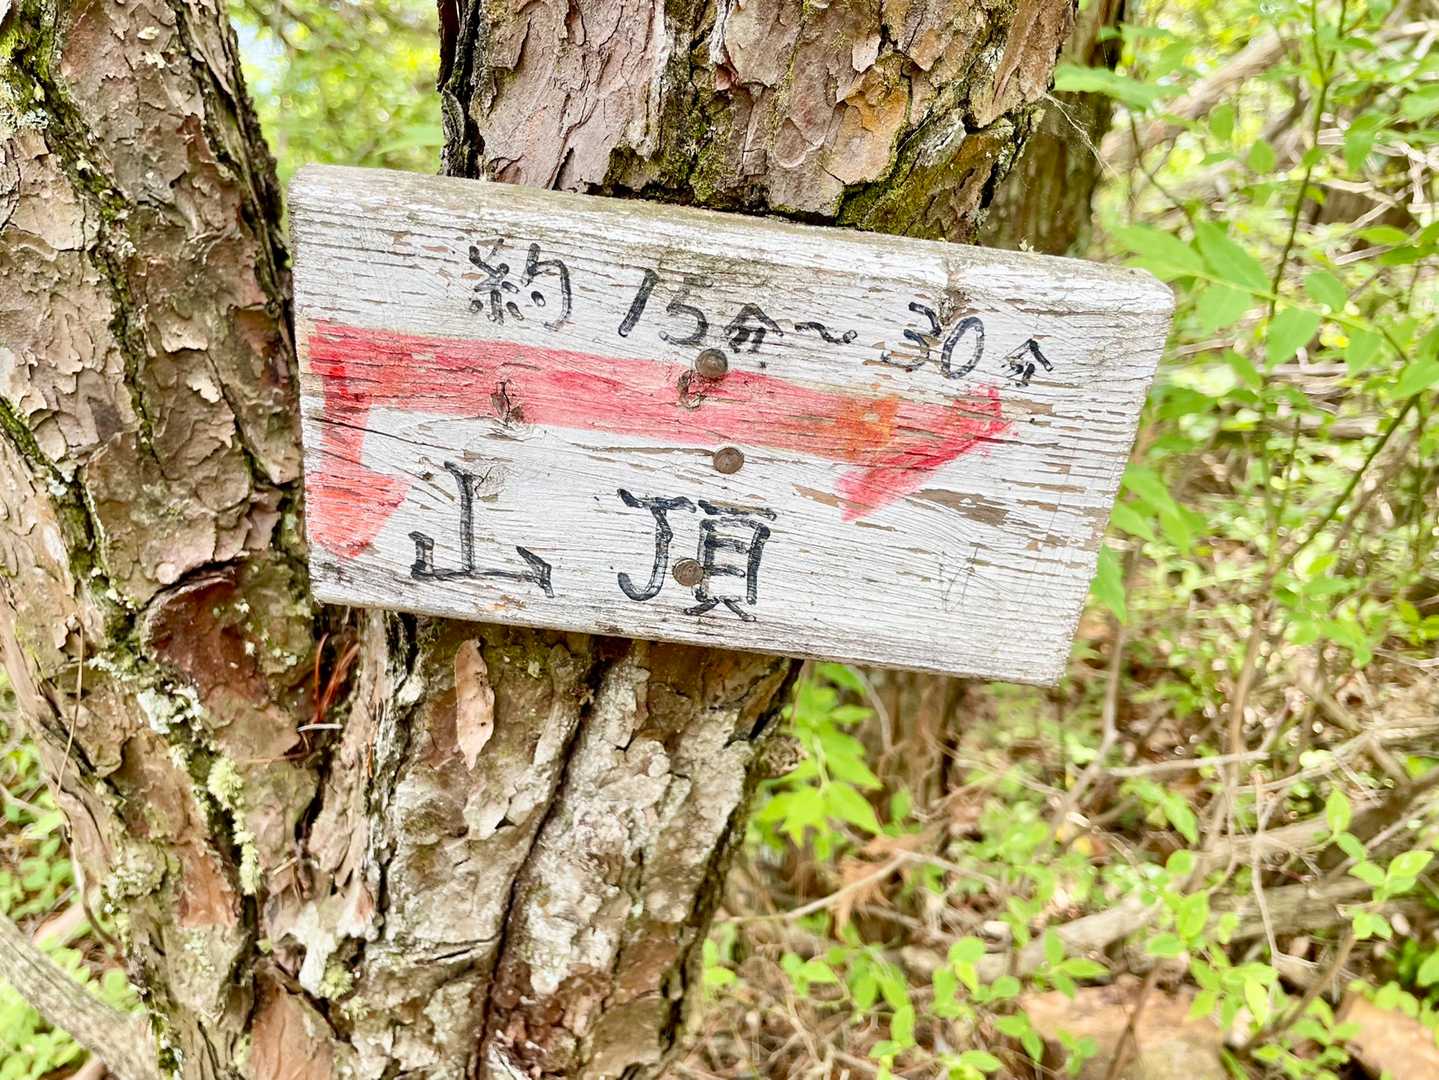 約15分~30分
山頂